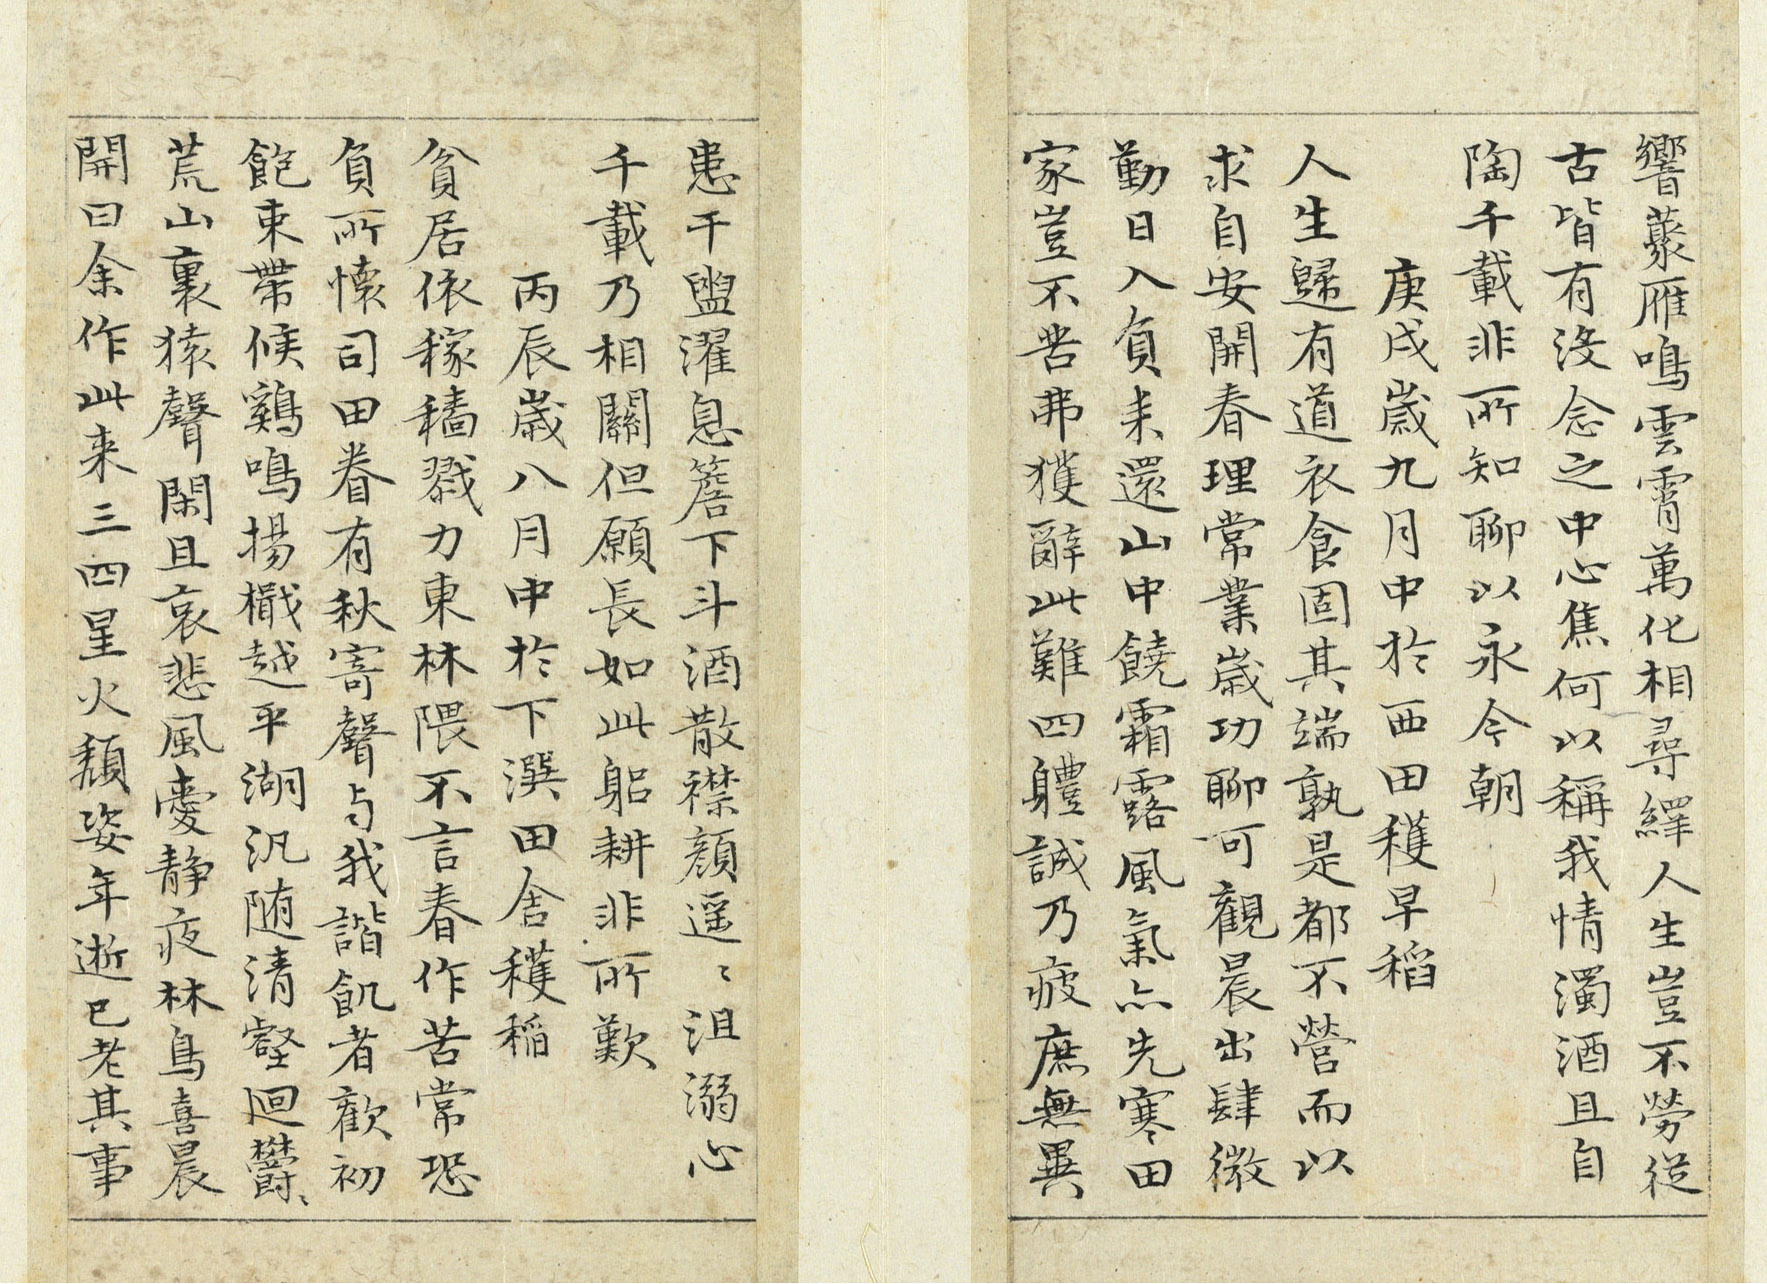 響藂雁鳴雲霄萬化相尋繹人生豈不勞從
古皆有没念之中心焦何以稱我情濁酒且自
陶千載非所知聊以永今朝
庚戌歲九月中於西田穫早稻
人生歸有道衣食固其端孰是都不營而以
求自安開春理常業歲功聊可觀晨出肆微
勤日入負耒還山中饒霜露風氣亦先寒田
家豈不苦弗獲辭此難四體誠乃疲庶無異
患干盥濯息簷下斗酒散襟顏遥〻沮溺心
千載乃相關但願長如此躬耕非所歎
丙辰歲八月中於下潠田舍穫稻
貧居依稼穡戮力東林隈不言春作苦常恐
負所懷司田眷有秋寄聲与我諧飢者歡初
飽束帶候鷄鳴揚檝越平湖汎随清壑廻鬱〻
荒山裏猿聲閑且哀悲風愛静夜林鳥喜晨
開曰余作此来三四星火頽姿年逝已老其事